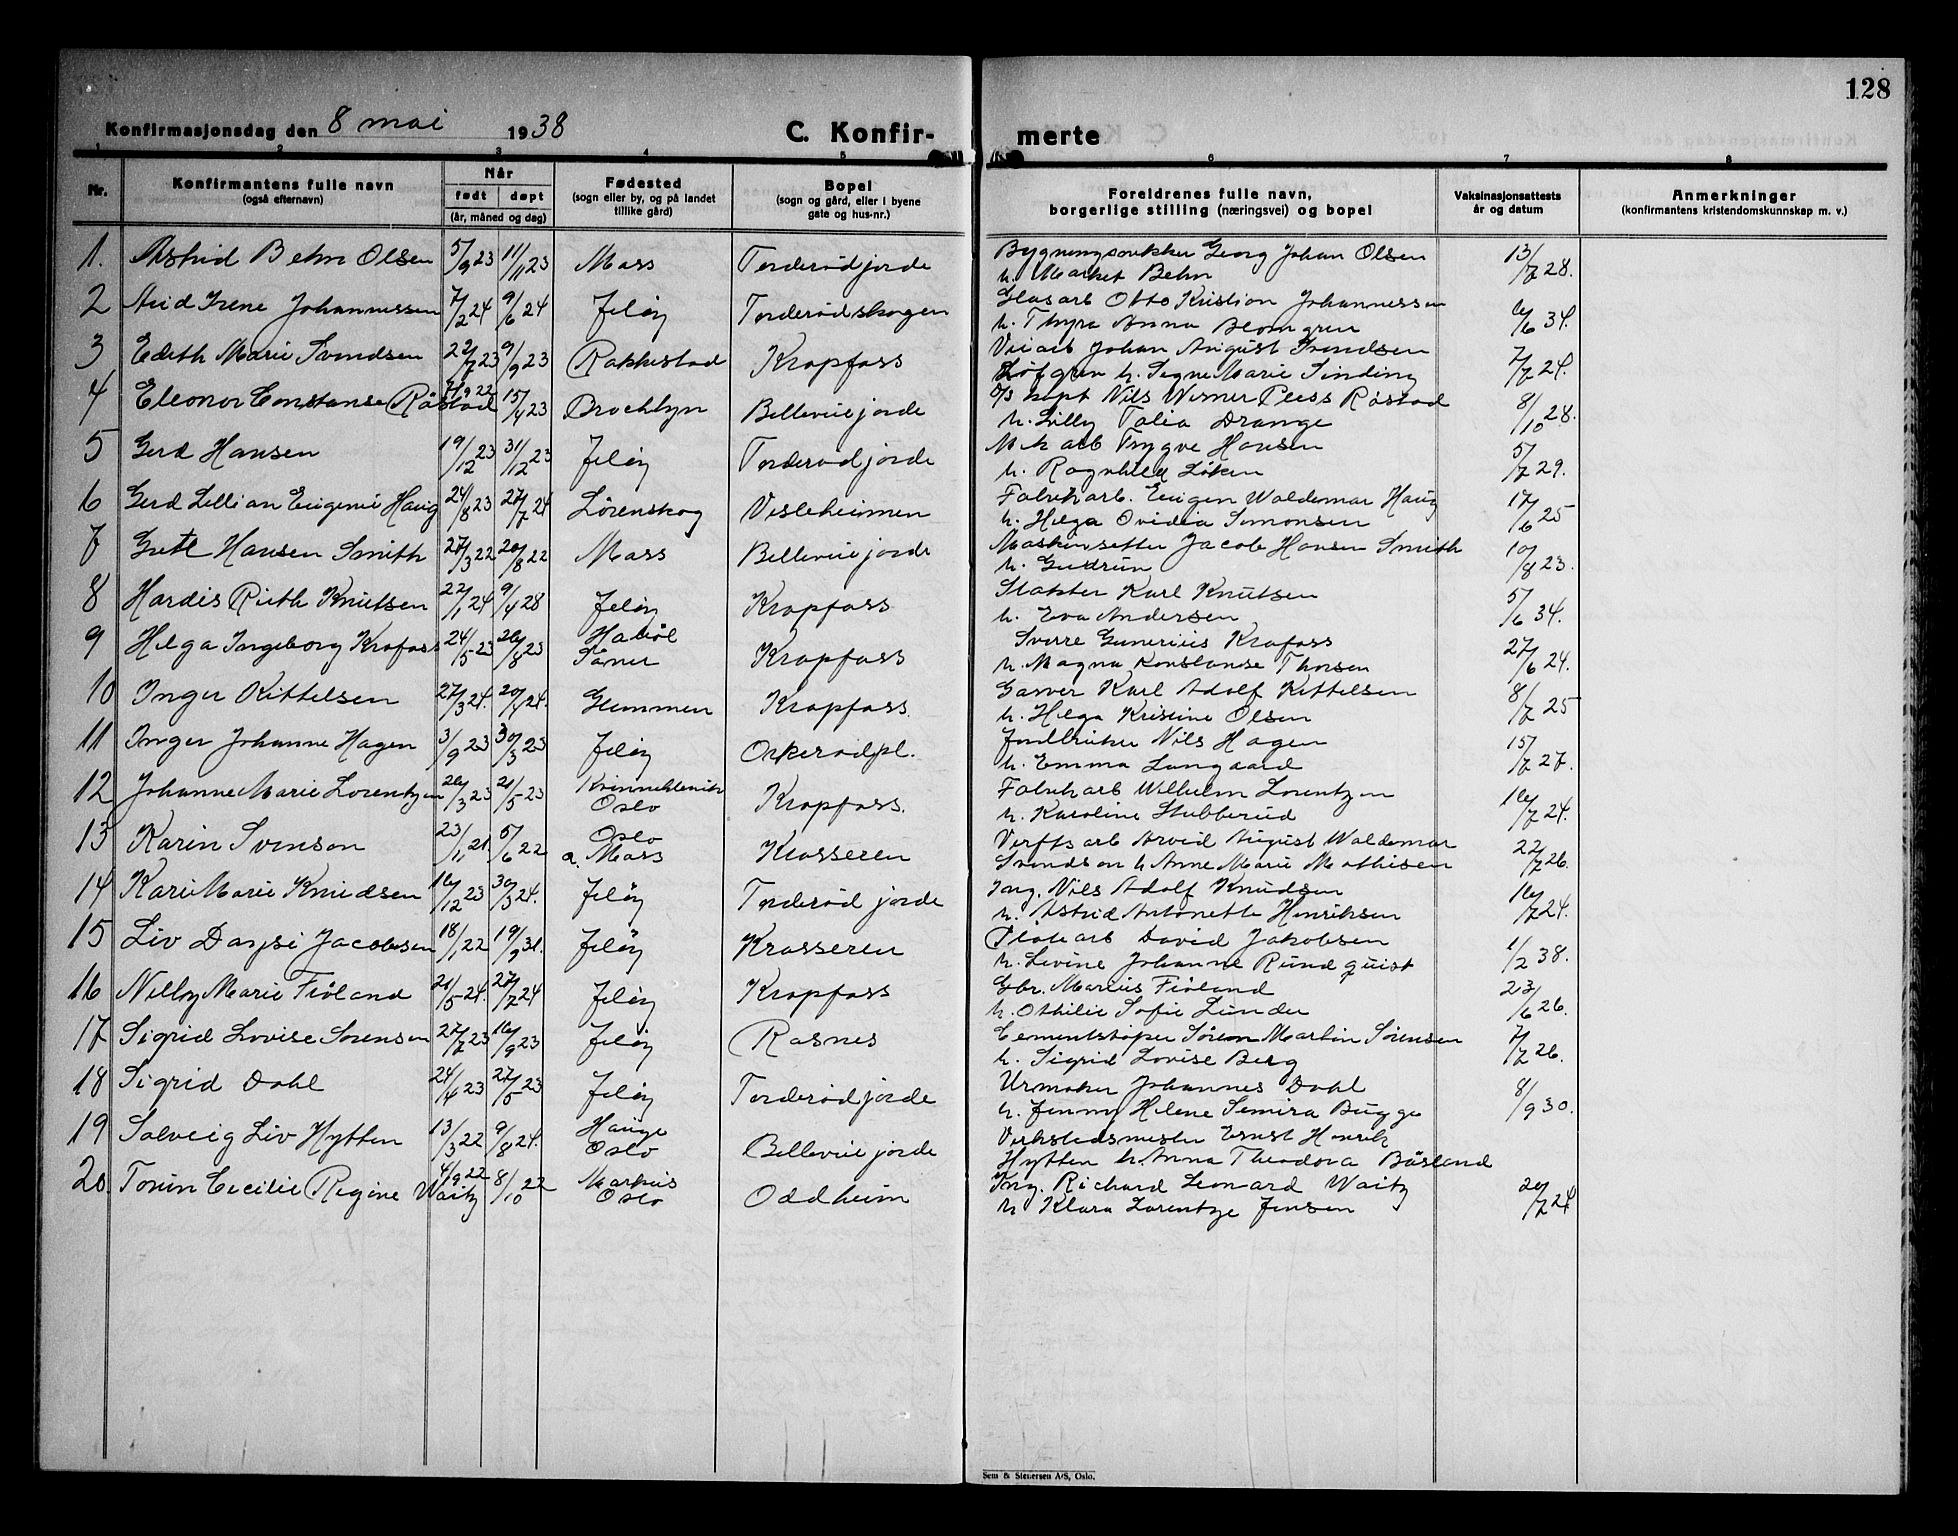 128
Konfirmasjonsdag den 8 mai 1938 C. Konfir-
merte
1 2 3 4 5 6 7 8
Nr. Konfirmantens fulle navn (også efternavn) Når født døpt (år, måned og dag) Fødested (sogn eller by, og på landet tillike gård) Bopel (sogn og gård, eller i byene gate og hus-nr.) Foreldrenes fulle navn, borgerlige stilling (næringsvei) og bopel Vaksinasjonsattests år og datum Anmerkninger (konfirmantens kristendomskunnskap m. v.)
1. Astrid Behn Olsen 5/9 23 11/11 23 Moss Torderødjorde Georg Johan Olsen h. Market Behn 13/7 28.
2 Aud Irene Johannessen 7/2 24 9/6 24 Jeløy Torderødskogen Glasarb Otto Kristian Johannessen h. Thyra Anna Blomgren 16/6 34.
3 Edith Marie Svendsen 22/7 23 9/9 23 Rakkestad Krapfoss Johan August Svendsen Löfgren h. Signe Marie Sinding 7/7 24.
4 Eleonor Constanse Råstad 7/9 22 15/4 23 Brocklyn Bellevuejorde Nils Werner Pless Råstad h. Lilly Talia Drange 8/10 28.
5 Gerd Hansen 19/12 23 31/12 23 Jeløy Torderødjorde Mek arb Trygve Hansen h. Ragnhild Løken 5/7 29.
6 Gerd Lillian Eugenie Haug 24/8 23 27/7 24 Lörenskog Vesleheimen Fabrikarb. Eugen Waldemar Haug h. Helga Ovidia Simonsen 17/6 25
7 Grete Hansen Smith 27/3 22 20/8 22 Moss Bellevuejorde Maskinsetter Jacob Hansen Smith h. Gudrun 10/8 23.
8 Hardis Ruth Knutsen 22/1 24 9/4 28 Jeløy Krapfoss Karl Knutsen h. Eva Andersen 5/6 34.
9 Helga Ingeborg Krafoss 24/5 23 26/8 23 Såner Krapfoss Sverre Gunerius Krafoss h. Magna Konstanse Thorsen 27/6 24.
10 Inger Kittelsen 27/3 24. 20/4 24. Glemmen Krapfoss. Garver Karl Adolf Kittelsen h. Helga Kristine Olsen 8/7 25
11 Inger Johanne Hagen 3/9 23 30/3 23 Jeløy Orkerødpl. Jordbruker Nils Hagen h. Emma Langaard 15/7 27.
12 Johanne Marie Lorentzen 26/3 23 21/5 23 Kvinneklinik Oslo Krapfoss. Fabrikarb Wilhelm Lorentzen h. Karoline Stubberud 16/7 24.
13 Karin Svenson 23/1 21 5/6 22 Oslo a. Moss Krosseren Verftsarb Arvid August Waldemar Svendson h Anne Marie Mathisen 22/7 26.
14 Kari Marie Knudsen 16/12 23 30/3 24. Jeløy Torderød jorde Ing. Nils Adolf Knudsen h. Astrid Antonette Henriksen 16/7 24.
15 Liv Daysi Jacobsen 18/1 22 19/9 31. Jeløy Krosseren David Jakobsen h. Levine Johanne Rundquist 1/2 38.
16 Nelly Marie Fiöland 21/5 24. 27/7 24 Jeløy Krapfoss Gbr. Marius Fiöland h. Othilie Sofie Lunder 23/6 26.
17 Sigrid Lovise Sørensen 27/7 23 16/9 23 Jeløy Rasnes Cementstøper Søren Martin Sørensen h. Sigrid Lovise Berg 7/7 26.
18 Sigrid Dahl 24/4 23 27/5 23 Jeløy Torderødjorde Urmaker Johannes Dahl h. Jenny Helene Semira Bugge 8/9 30.
19 Solveig Liv Hytten 13/3 22 9/8 24. Hauge Oslo Bellevue jorde Verkstedsmester Ernst Henrik Hytten h. Anna Theodora Båsland
20 Torun Cecilie Regine Waitz 4/9 22 8/10 22 Markus Oslo Oddheim Ing. Richard Leonard Waitz h Klara Lorentze Jensen 20/7 24
Sem & Stenersen A/S, Oslo.